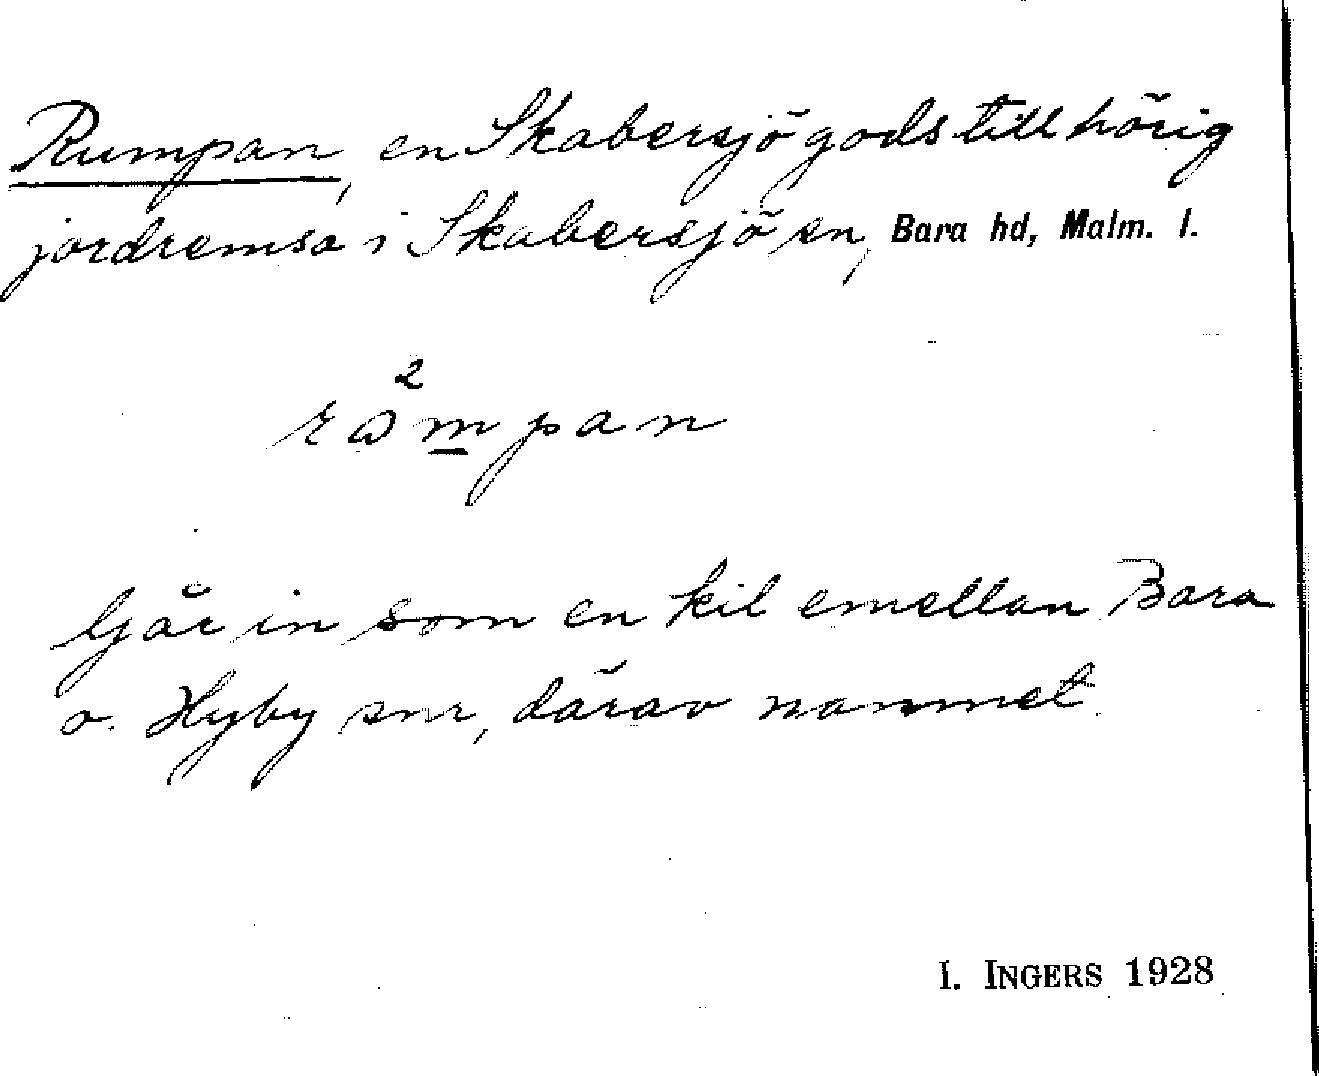 Rumpan, en Skabersjö gods tillhörig
jordremsa i Skabersjö sn, Bara hd, Malm. l.
2
rωmpan
Går in som en kil emellan Bara
o. Hyby snr, därav namnet.
I. INGERS 1928